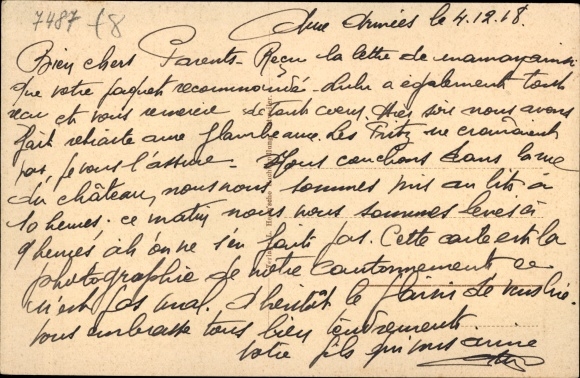 7487 /8
Aux Armées le 4.12.18.
Bien chers Parents - Reçu la lettre de maman ainsi
que votre paquet recommandé. Lulu a également tout
reçu et vous remercie de tout coeur. Hier soir nous avons
fait retraite aux flambeaux. Les Fritz ne
pas, je vous l'assure - Nous couchons dans la
du château, nous nous sommes mis au lit à
10 heures. ce matin nous nous sommes levés à
9 heures ah on ne s'en fait pas. Cette carte est la
photographie de notre cantonnement ce
n'est pas mal. A bientôt le plaisir de vous lire.
Vous embrasse tous bien tendrement.
votre fils qui vous aime